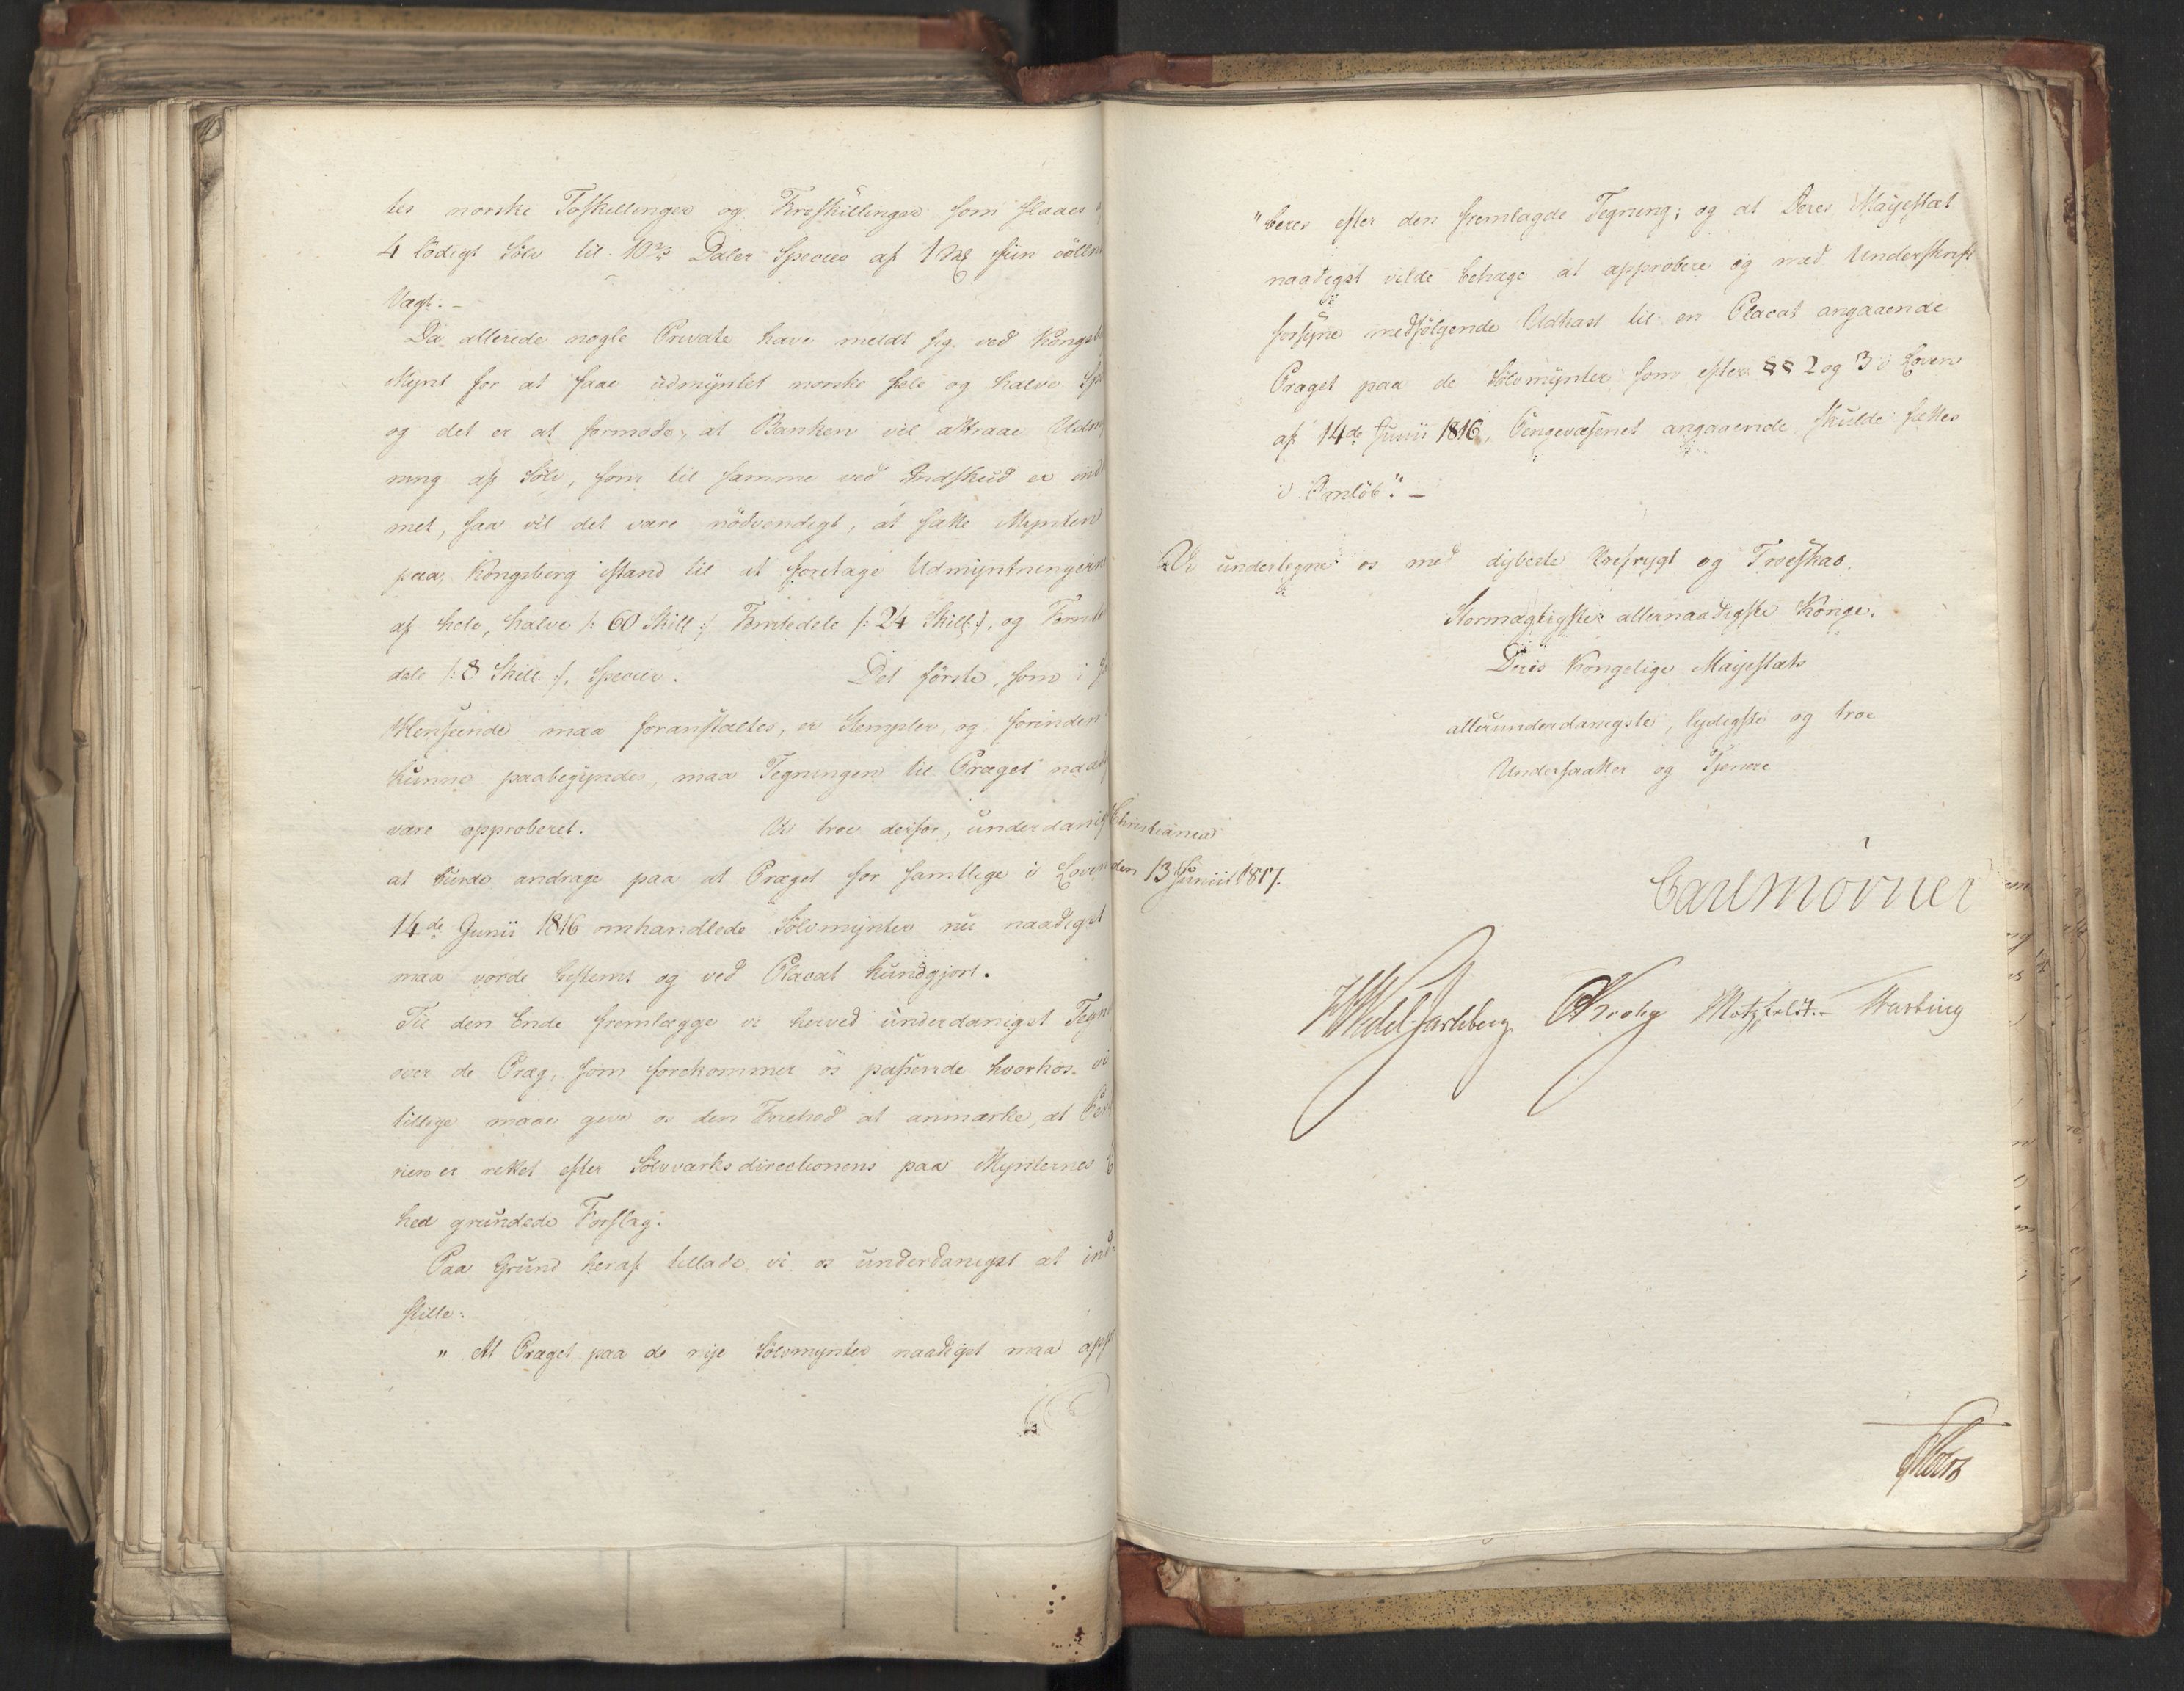 tes norske Toskillinger og Fireskillinger som slaaes
4 lödigt Sölv til 10⅔ Daler Species af 1 Mk fiin cölln
Vægt. –
Da allerede nogle Private have meldt sig ved Kongsb
Mynt for at faae udmyntet norske hele og halve Sp
og det er at formode, at Banken vil attraae Udmy
ning af Sölv, som til samme ved Indskud er ind
met, saa vil det være nödvendigt, at sætte Mynten
paa Kongsberg istand til at foretage Udmyntningerne
af hele, halve /: 60 Skill :/ Femtedele /: 24 Skill :/, og Femte
dele /: 8 Skill. :/, Specier. Det förste, som i
Henseende maa foranstaltes, er Stempler, og forinden
kunne paabegyndes, maa Tegningen til Præget naad
være approberet. Vi troe derfor, underdanigst
at burde andrage paa at Præget for samtlige i Loven
14de Junii 1816 omhandlede Sölvmynter nu naadigst
maa vorde bestemt og ved Placat kundgjort.
Til den Ende fremlægge vi herved underdanigst Tegn
over de Præg, som forekommer os passende hvorhos vi
tillige maae give os den Friehed at anmærke, at
rien er rettet efter Sölvværksdirectionens paa Mynternes
hed grundede Forslag.
Paa Grund heraf tillade vi os underdanigst at ind-
stille:
" At Præget paa de nye Sölvmynter naadigst maa app
"beres efter den fremlagde Tegning; og at Deres Majestæt
naadigst vilde behage at approbere og med Underskrift
forsyne medfölgende Udkast til en Placat angaaende
Præget paa de Sölvmynter som efter §§ 2 og 3 i Loven
af 14de Junii 1816, Pengevæsenet angaaende, skulde sættes
i Omlöb". –
Vi undertegne os med dybeste Ærefrygt og Troeskab.
Stormægtigste allernaadigste Konge.
Deres Kongelige Majestæts
allerunderdanigste, lydigste og troe
Undersaatter og Tjenere
Christiania
den 13 Junii 1817.
Carl Mörner
HWedel Jarlsberg CKrohg Motzfeldt.– Thaubing